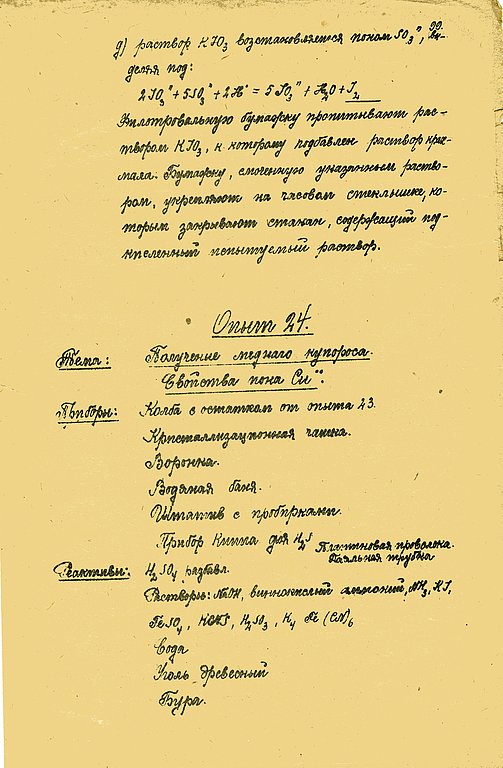 д) раствор KJO₃ возстановляется ионом SO₃", вы-
деляя под:
2JO₃' + 5SO₃" + 2H· = 5SO₄" + H₂O + J₂
Фильтровальную бумажку пропитывают рас-
твором KJO₃, к которому подбавлен раствор крах-
мала. Бумажку, смоченную указанным раство-
ром, укрепляют на часовом стеклышке, ко-
торым закрывают стакан, содержащий под-
кисленный испытуемый раствор.
Опыт 24.
Тема: Получение меднаго купороса.
Свойства иона Cu··.
Приборы: Колба с остатком от опыта 23.
Кристаллизационная чашка.
Воронка.
Водяная баня.
Штатив с пробирками.
Прибор Киппа для H₂S Платиновая проволока.
Паяльная трубка
Реактивы: H₂SO₄ разбавл.
Растворы: NaOH, виннокислый аммоний, NH₃, KJ,
FeSO₄, KCNS, H₂SO₃, K₄Fe(CN)₆
Вода
Уголь древесный
Бура.